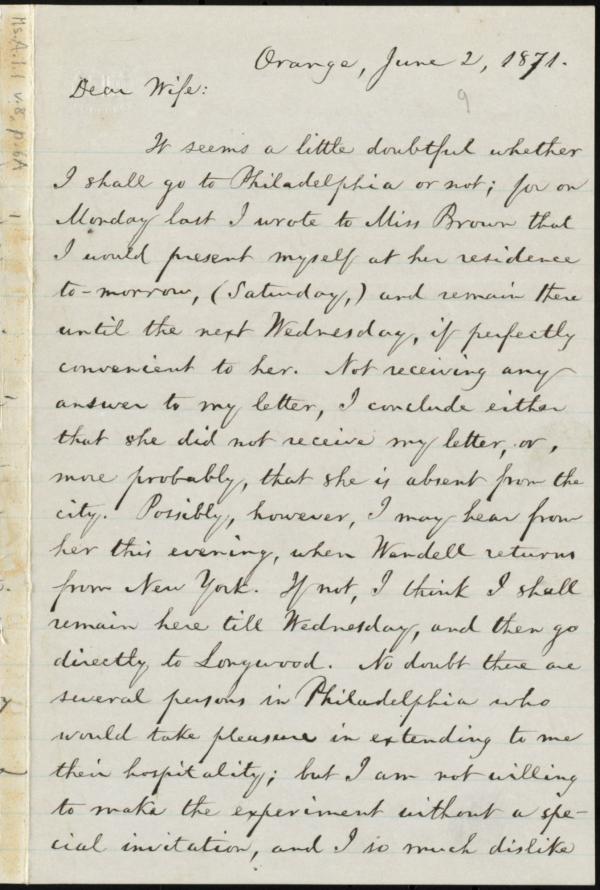 Ms.A.1.1 v.8, p.6A
Orange, June 2, 1871.
9
Dear Wife:
It seems a little doubtful whether
I shall go to Philadelphia or not; for on
Monday last I wrote to Miss Brown that
I would present myself at her residence
to-morrow, (Saturday,) and remain there
until the next Wednesday, if perfectly
convenient to her. Not receiving any
answer to my letter, I conclude either
that she did not receive my letter, or,
more probably, that she is absent from the
city. Possibly, however, I may hear from
her this evening, when Wendell returns
from New York. If not, I think I shall
remain here till Wednesday, and then go
directly to Longwood. No doubt there are
several persons in Philadelphia who
would take pleasure in extending to me
their hospitality; but I am not willing
to make the experiment without a spe-
cial invitation, and I so much dislike